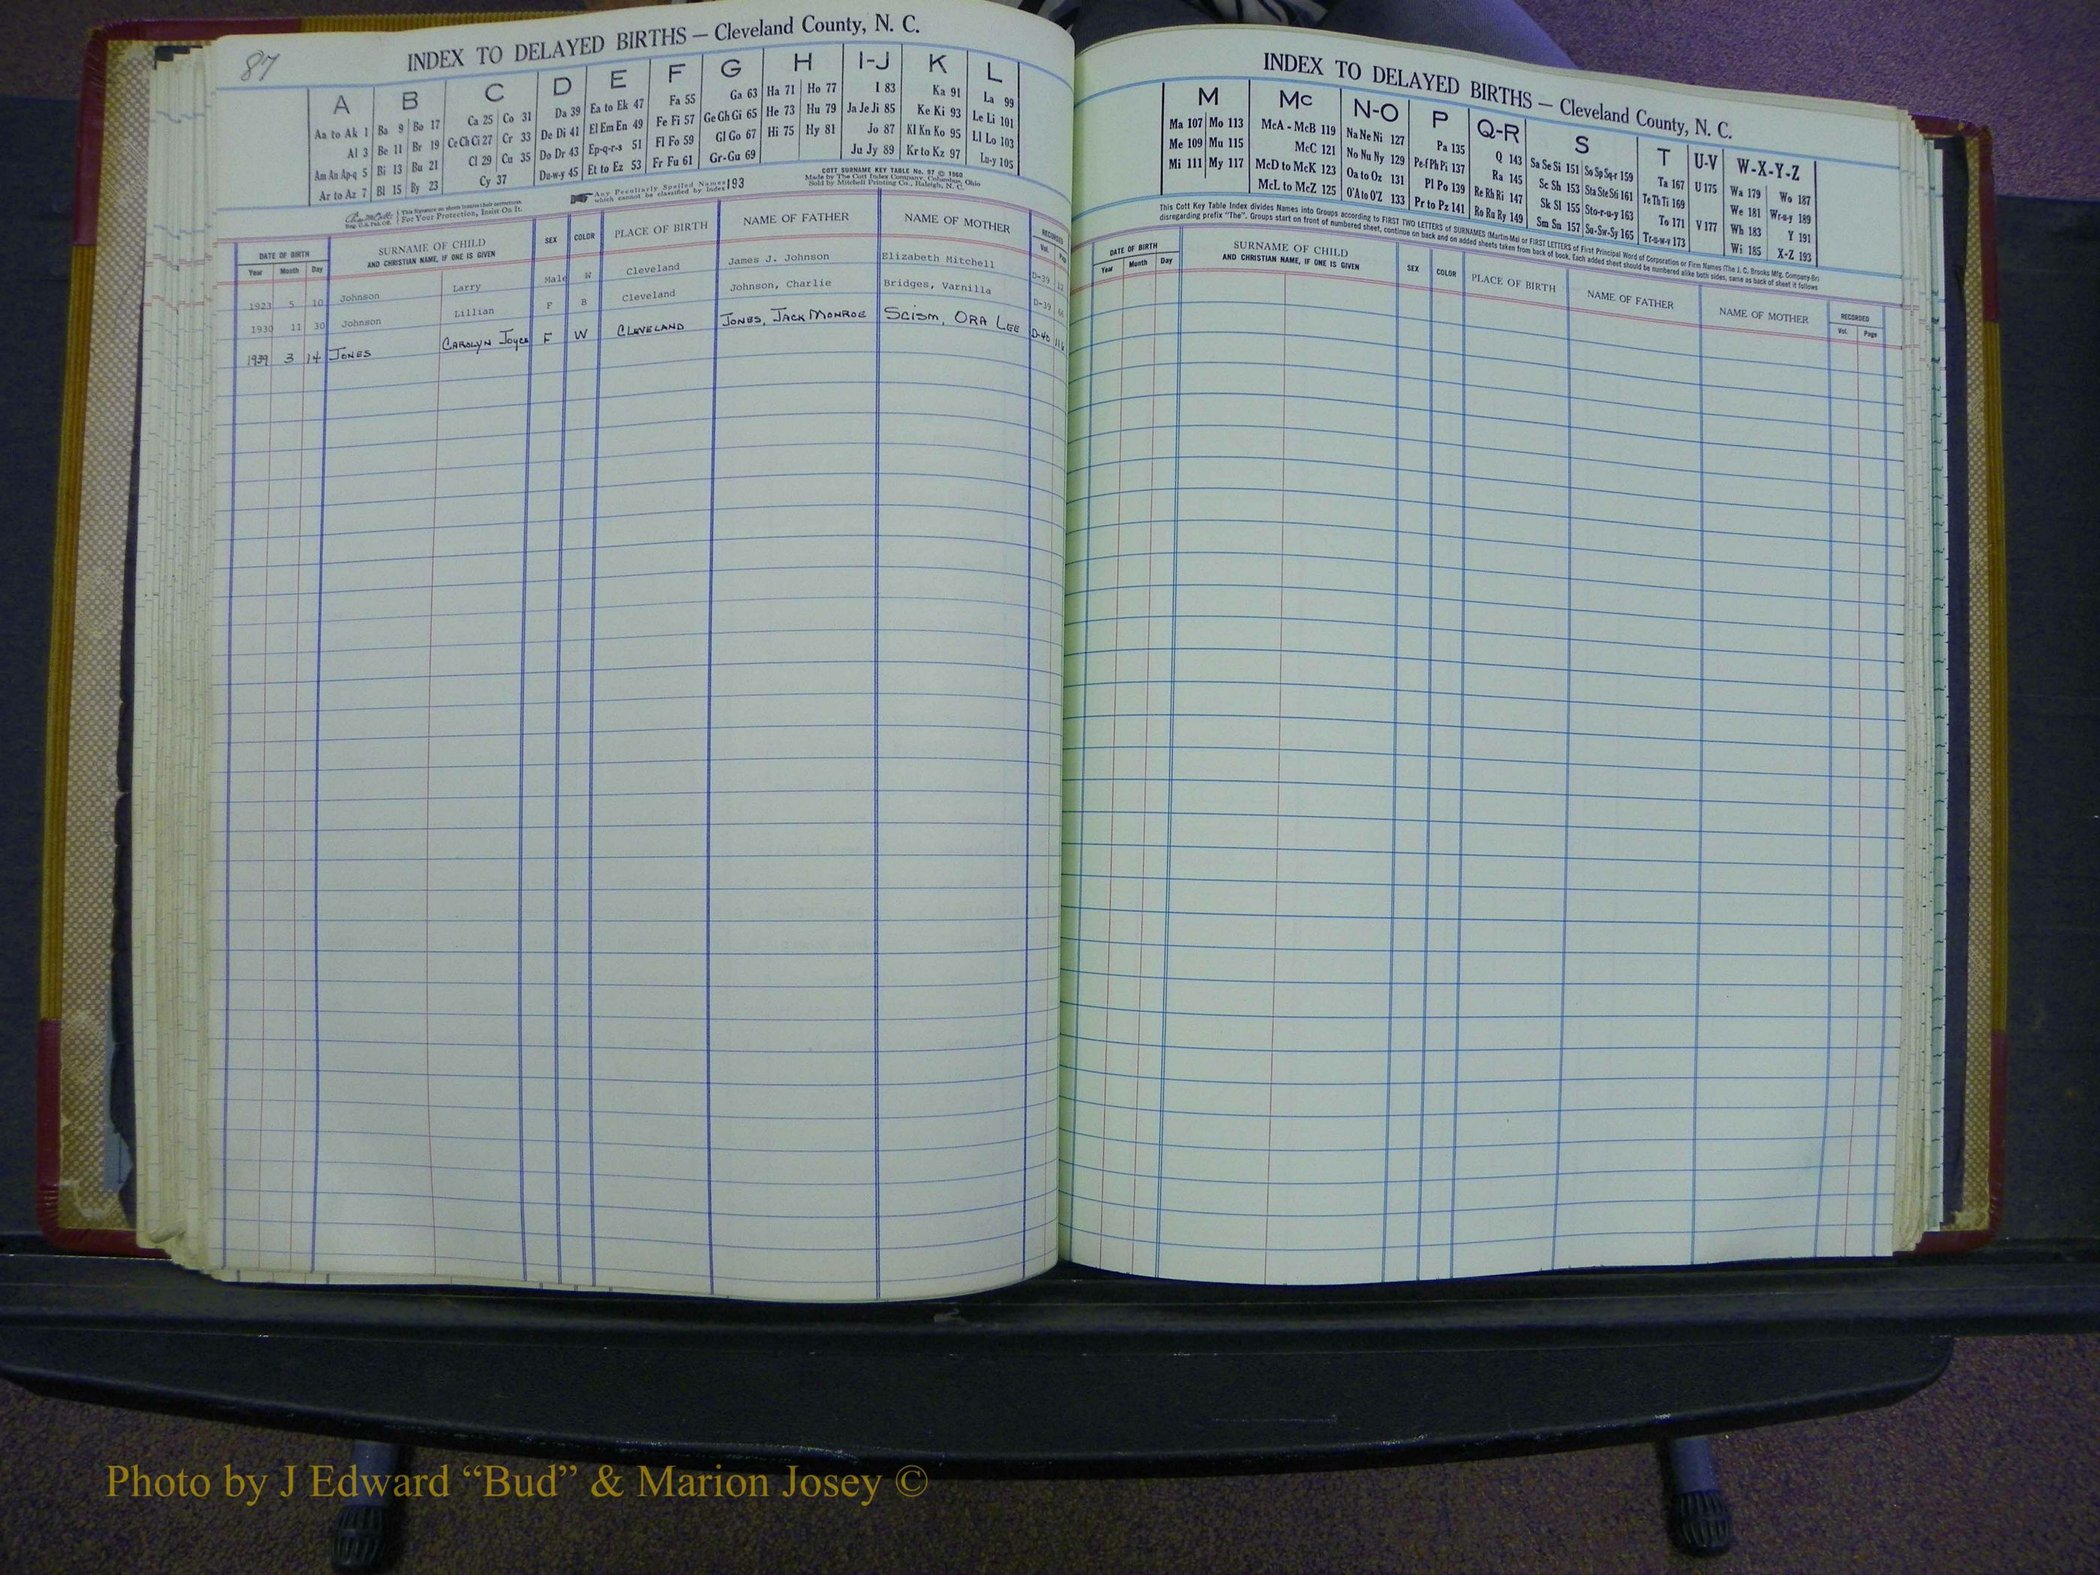 87
INDEX TO DELAYED BIRTHS — Cleveland County, N. C.
A B C D E F G H I-J K L
Aa to Ak 1 Ba 9 Bo 17 Ca 25 Co 31 Da 39 Ea to Ek 47 Fa 55 Ga 63 Ha 71 Ho 77 I 83 Ka 91 La 99
Al 3 Be 11 Br 19 Ce Ch Ci 27 Cr 33 De Di 41 El Em En 49 Fe Fi 57 Ge Gh Gi 65 He 73 Hu 79 Ja Je Ji 85 Ke Ki 93 Le Li 101
Am An Ap-q 5 Bi 13 Bu 21 Cl 29 Cu 35 Do Dr 43 Ep-q-r-s 51 Fl Fo 59 Gl Go 67 Hi 75 Hy 81 Jo 87 Kl Kn Ko 95 Ll Lo 103
Ar to Az 7 Bl 15 By 23 Cy 37 Du-w-y 45 Et to Ez 53 Fr Fu 61 Gr-Gu 69 Ju Jy 89 Kr to Kz 97 Lu-y 105
This Signature on sheets insures their correctness.
Reg. U.S. Pat. Off. For Your Protection, Insist On It.
Any Peculiarly Spelled Names which cannot be classified by Index 193
COTT SURNAME KEY TABLE No. 97 © 1960
Made by The Cott Index Company, Columbus, Ohio
Sold by Mitchell Printing Co., Raleigh, N. C.
DATE OF BIRTH SURNAME OF CHILD AND CHRISTIAN NAME, IF ONE IS GIVEN SEX COLOR PLACE OF BIRTH NAME OF FATHER NAME OF MOTHER RECORDED
Year Month Day Vol.
1923 5 10 Johnson Larry Male Cleveland James J. Johnson Elizabeth Mitchell D-39 12
1930 11 30 Johnson Lillian F B Cleveland Johnson, Charlie Bridges, Varnilla D-39
1939 3 14 JONES CAROLYN JOYCE F W CLEVELAND JONES, JACK MONROE SCISM, ORA LEE D-40
INDEX TO DELAYED BIRTHS — Cleveland County, N. C.
M Mc N-O P Q-R S T U-V W-X-Y-Z
Ma 107 Mo 113 McA - McB 119 Na Ne Ni 127 Pa 135 Q 143 Sa Se Si 151 So Sp Sq-r 159 Ta 167 U 175 Wa 179 Wo 187
Me 109 Mu 115 McC 121 No Nu Ny 129 Pe-f Ph Pi 137 Ra 145 Sc Sh 153 Sta Ste Sti 161 Te Th Ti 169 We 181 Wr-u-y 189
Mi 111 My 117 McD to McK 123 Oa to Oz 131 Pl Po 139 Re Rh Ri 147 Sk Sl 155 Sto-r-u-y 163 To 171 V 177 Wh 183 Y 191
McL to McZ 125 O'A to O'Z 133 Pr to Pz 141 Ro Ru Ry 149 Sm Sn 157 Su-Sw-Sy 165 Tr-u-w-v 173 Wi 185 X-Z 193
This Cott Key Table Index divides Names into Groups according to FIRST TWO LETTERS of SURNAMES (Martin-Ma) or FIRST LETTERS of First Principal Word of Corporation or Firm Names (The J. C. Brooks Mfg. Company-Br)
disregarding prefix "The". Groups start on front of numbered sheet, continue on back and on added sheets taken from back of book. Each added sheet should be numbered alike both sides, same as back of sheet it follows
DATE OF BIRTH SURNAME OF CHILD AND CHRISTIAN NAME, IF ONE IS GIVEN SEX COLOR PLACE OF BIRTH NAME OF FATHER NAME OF MOTHER RECORDED
Year Month Day Vol. Page
Photo by J Edward “Bud” & Marion Josey ©